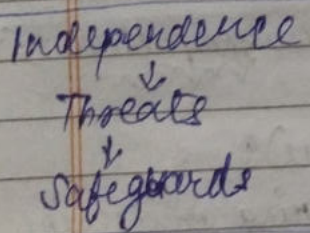 Independence
↓
Threats
↓
Safeguards